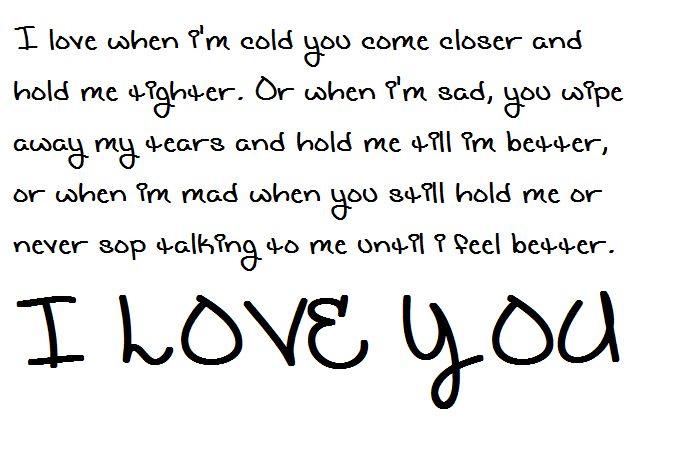 I love when i'm cold you come closer and
hold me tighter. Or when i'm sad, you wipe
away my tears and hold me till im better,
or when im mad when you still hold me or
never sop talking to me until i feel better.
I LOVE YOU